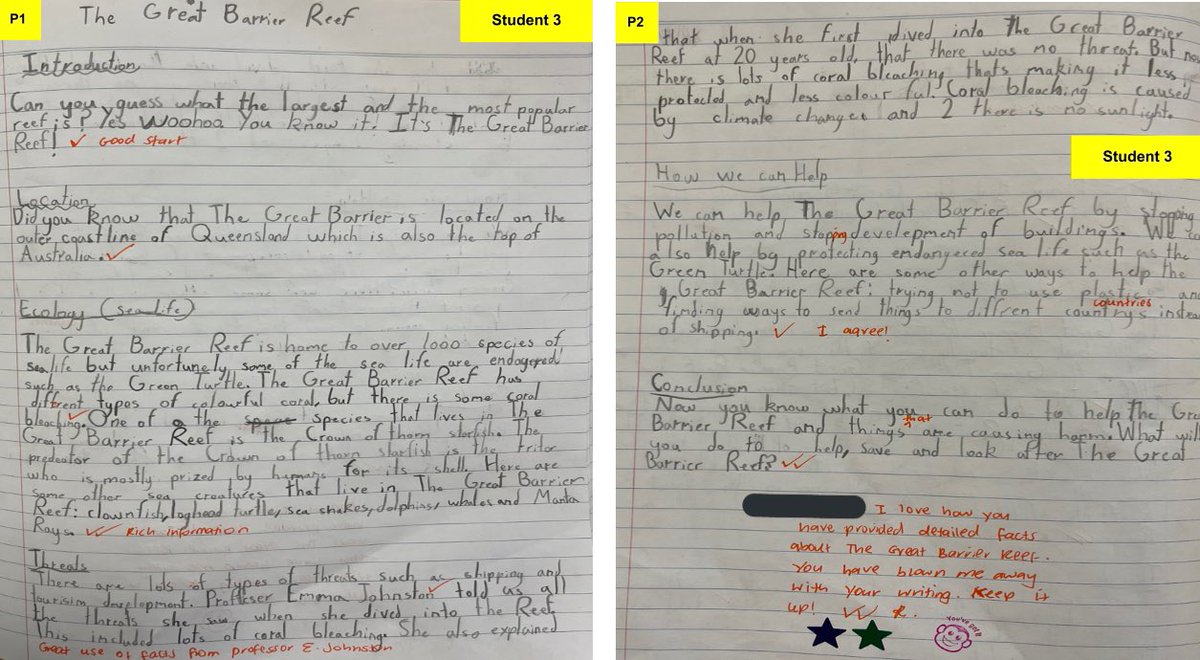 P1
The Great Barrier Reef
Student 3
Introduction
Can you guess what the largest and the most popular
reef is? Yes Woohoo You know it. It's The Great Barrier
Reef! ✓ Good start
Location
Did you know that The Great Barrier is located on the
outer coastline of Queensland which is also the top of
Australia. ✓
Ecology (sealife)
The Great Barrier Reef is home to over 1000 species of
sealife but unfortunely some of the sea life are endagered
such as the Green Turtle. The Great Barrier Reef has
diffrent types of colourful coral, but there is some coral
bleaching. ✓ One of the species that lives in The
Great Barrier Reef is the Crown of thorn starfish. The
predeator of the Crown of thorn starfish is the tritor
who is mostly prized by humans for its shell. Here are
some other sea creatures that live in The Great Barrier
Reef: clownfish, loghead turtle, sea snakes, dolphins, whales and Manta
Rays. ✓✓ Rich information
Threats
There are lots of types of threats such as shipping and
tourisim development. Proffeser Emma Johnston ✓ told us all
the threats she saw when she dived into the Reef
This included lots of coral bleaching. She also explained
Great use of facts from professor E. Johnston
P2
that when she first dived into The Great Barrier
Reef at 20 years old, that there was no threat. But now
there is lots of coral bleaching thats making it less
protected and less colour ful. Coral bleaching is caused
by climate changer and 2 there is no sunlight.
Student 3
How we can Help
We can help The Great Barrier Reef by stopping
pollution and stopping develepment of buildings. We
also help by protecting endangered sea life such as the
Green Turtle. Here are some other ways to help the
Great Barrier Reef: trying not to use plastic
countries
finding ways to send things to diffrent country's
of shipping. ✓ I agree!
Conclusion
Now you know what you can do to help The
that
Barrier Reef and things are causing harm. What will
you do to help, save and look after The Great
Barrier Reef? ✓✓
I love how you
have provided detailed facts
about The Great Barrier Reef.
You have blown me away
with your writing. Keep it
up! ✓✓ R.
You've got it